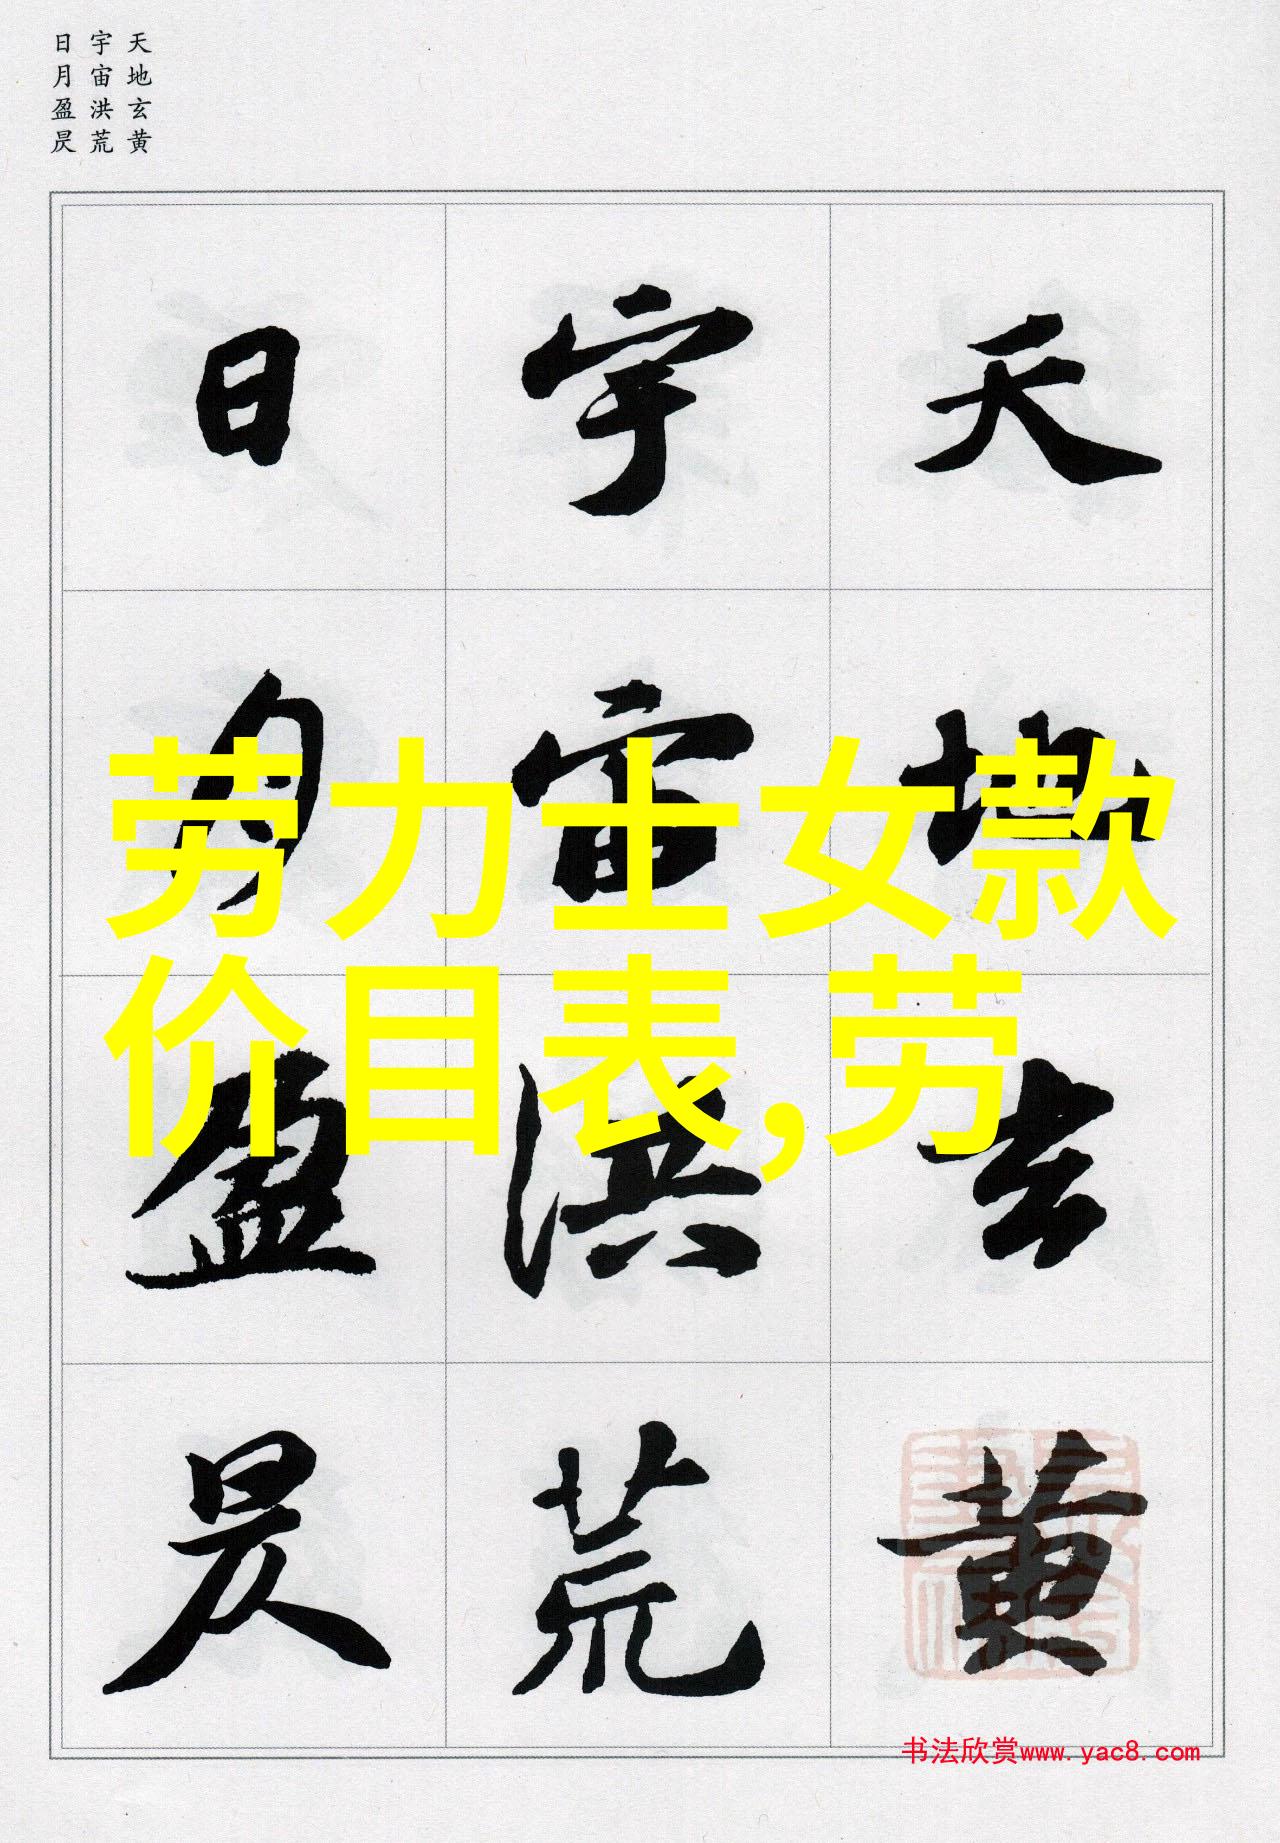 天地玄黄
宇宙洪荒
日月盈昃
天地玄黄
宇宙洪荒
日月盈昃
劳力士女款
价目表,劳
书法欣赏www.yac8.com